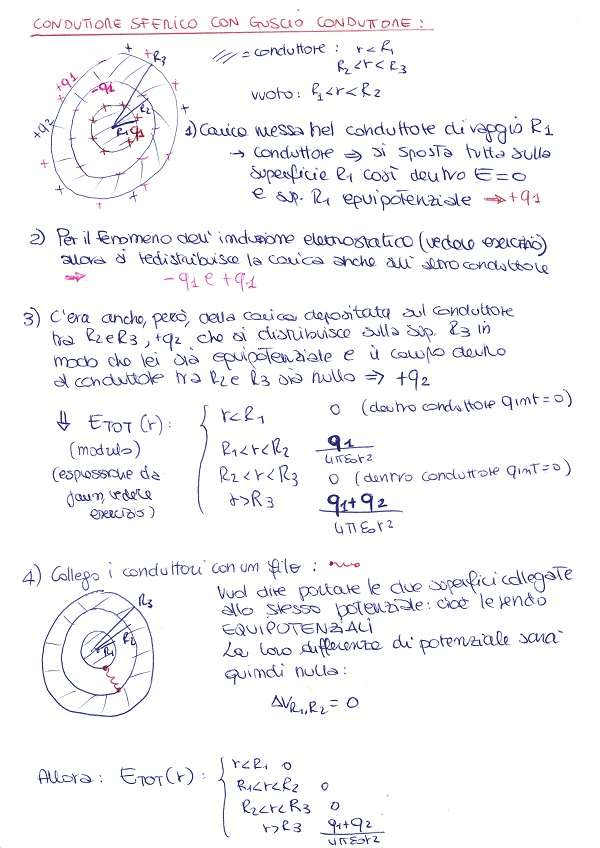 CONDUTTORE SFERICO CON GUSCIO CONDUTTORE:
= conduttore : r<R1
R2<r<R3
vuoto: R1<r<R2
+ + R3
+q1
-q1
+q2
R2
R1 q1
1) Carica messa nel conduttore di raggio R1
→ conduttore ⇒ si sposta tutta sulla
superficie R1 così dentro E=0
e sup. R1 equipotenziale ⇒ +q1
2) Per il fenomeno dell'induzione elettrostatica (vedere esercizio)
allora si redistribuisce la carica anche sull'altro conduttore
⇒ -q1 e +q1
3) C'era anche, però, della carica depositata sul conduttore
tra R2 e R3, +q2 che si distribuisce sulla sup. R3 in
modo che lei sia equipotenziale e il campo dentro
al conduttore tra R2 e R3 sia nullo ⇒ +q2
⇓ ETOT (r) :
(modulo)
(espressione da
Gauss, vedere
esercizio)
r<R1 0 (dentro conduttore qint=0)
R1<r<R2 q1/4πε0r²
R2<r<R3 0 (dentro conduttore qinT=0)
r>R3 q1+q2/4πε0r²
4) Collego i conduttori con un filo :
R3
R2
R1
Vuol dire portare le due superfici collegate
allo stesso potenziale: cioè le rendo
EQUIPOTENZIALI
La loro differenza di potenziale sarà
quindi nulla:
ΔVR1,R2 = 0
Allora: ETOT(r) :
r<R1 0
R1<r<R2 0
R2<r<R3 0
r>R3 q1+q2/4πε0r²